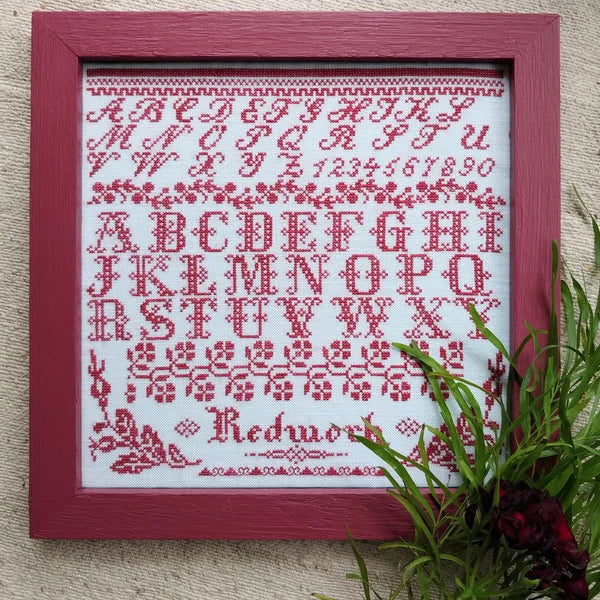 A B C D E F G H I K L
M N O P Q R S T U
V W X Y Z 1234567890
ABCDEFGHI
JKLMNOPQ
RSTUVWXY
Redwork